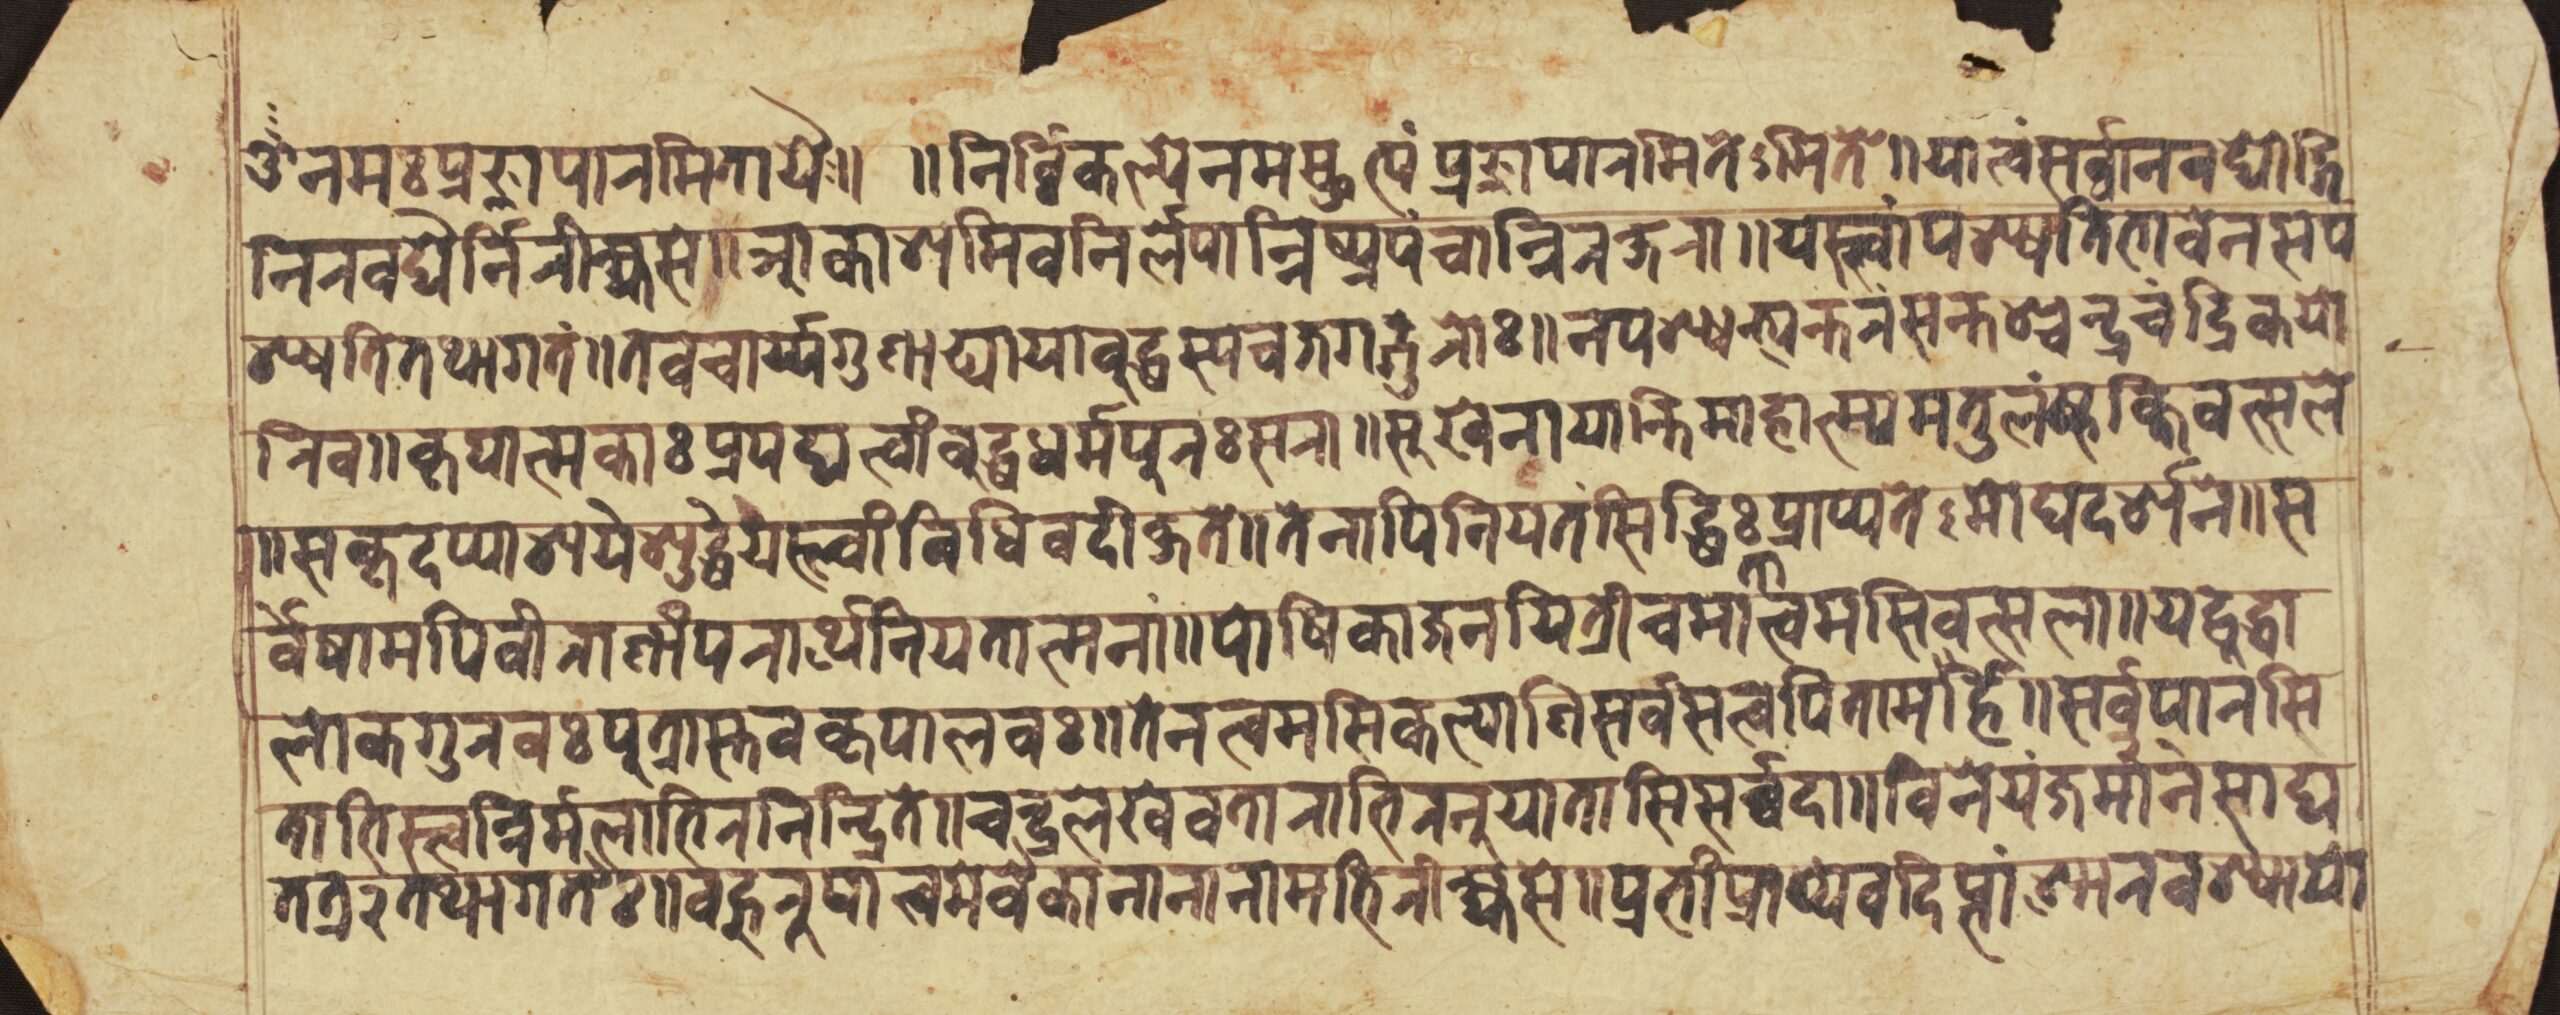 ॐ नमः प्रज्ञापारमितायैः॥ ॥निर्व्विकल्पे नमस्तुत्यं प्रज्ञापारमितेऽमिते॥ या त्वं सर्व्वानवद्याङ्गि
निरवद्यैर्निरीक्ष्यसे॥ आकाशमिव निर्लेपान्निष्प्रपंचान्निरक्षरा॥ यस्त्वां पश्यति भावेन स प
श्यति तथागतं॥ तव चार्य्यगुणाढ्याया बुद्धस्य च जगद्गुरोः॥ न पश्यन्त्यन्तरं सन्तश्चन्द्रचंद्रिकयो
रिव॥ कृपात्मकाः प्रपद्य त्वां बुद्धधर्मपुरःसरा॥ सुखेनायान्ति माहात्म्यमतुलं भक्तिवत्सले
॥ सकृदप्याशये शुद्धे यस्त्वां विधिवदीक्षते॥ तेनापि नियतं सिद्धिः प्राप्यतेऽमोघदर्शने॥ स
र्वेषामपि वीराणां परार्थे नियतात्मनां॥ पोषिका जनयित्री च माता त्वमसि वत्सला॥ यद्बुद्धा
लोकगुरवः पुत्रास्तव कृपालवः॥ तेन त्वमसि कल्याणि सर्वसत्त्वपितामही॥ सर्वपारमि
ताभिस्त्वन्निर्मलाभिरनिन्दिते॥ चन्द्रलेखेव ताराभिरनुयातासि सर्व्वदा॥ विनेयं जनमासाद्य
तत्र२ तथागतैः॥ बहुरूपा त्वमेवैका नानानामभिरीक्ष्यसे॥ प्रभां प्राप्येव दिप्तांशोरवश्यायो